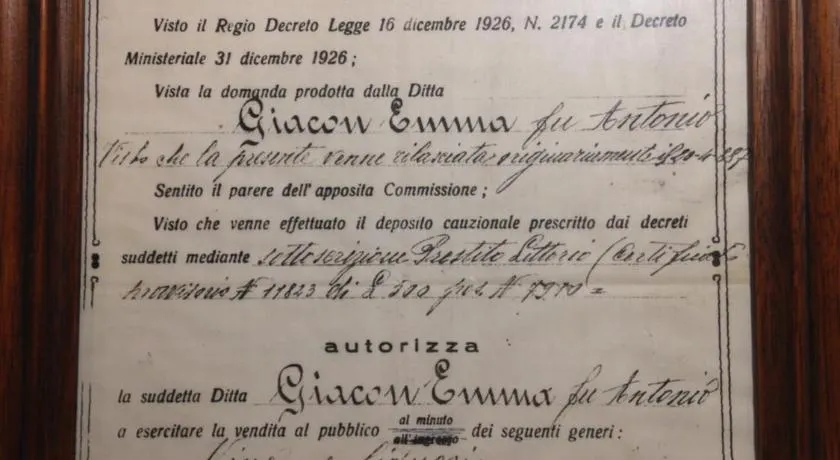 Visto il Regio Decreto Legge 16 dicembre 1926, N. 2174 e il Decreto
Ministeriale 31 dicembre 1926;
Vista la domanda prodotta dalla Ditta
Giacon Emma fu Antonio
Visto che la presente venne rilasciata originariamente il
Sentito il parere dell'apposita Commissione;
Visto che venne effettuato il deposito cauzionale prescritto dai decreti
suddetti mediante sottoscrizione Prestito Littorio (Certificato
provvisorio N 11823 di £ 500 per N
autorizza
la suddetta Ditta Giacon Emma fu Antonio
al minuto
a esercitare la vendita al pubblico all'ingrosso dei seguenti generi: